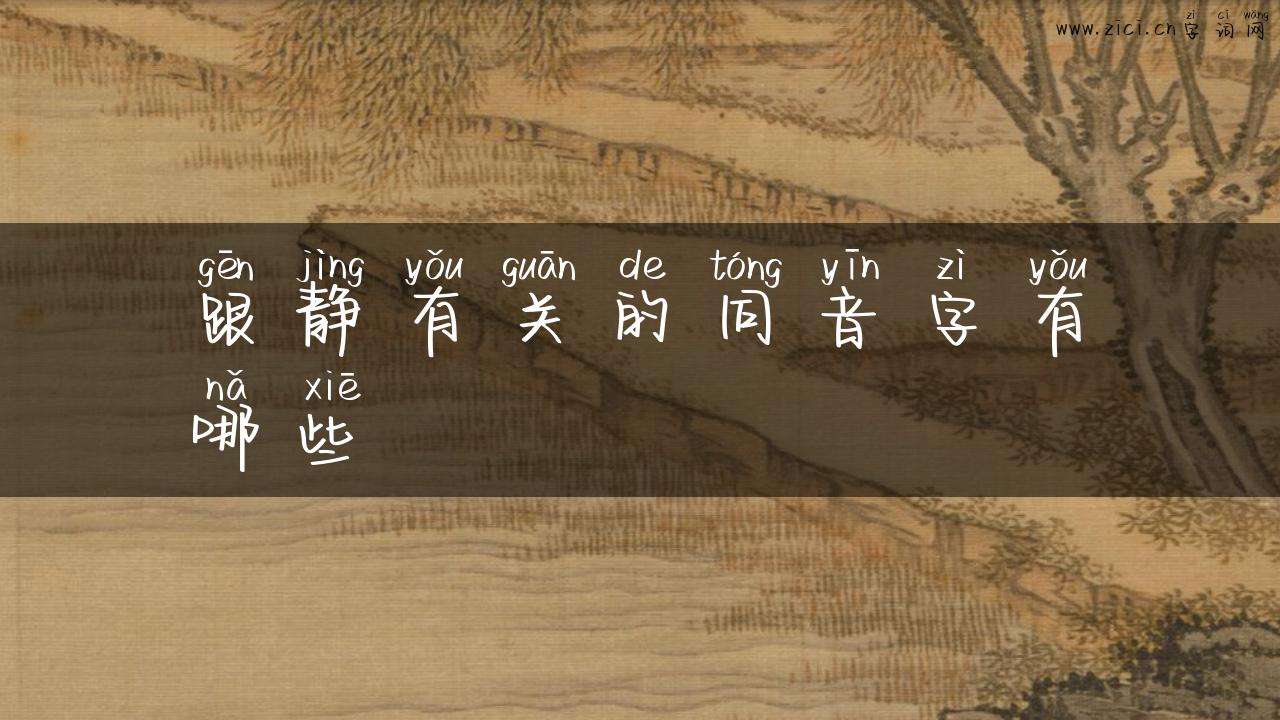 zì cí wǎng
www.zici.cn字词网
gēn jìng yǒu guān de tóng yīn zì yǒu
跟静有关的同音字有
nǎ xiē
哪些